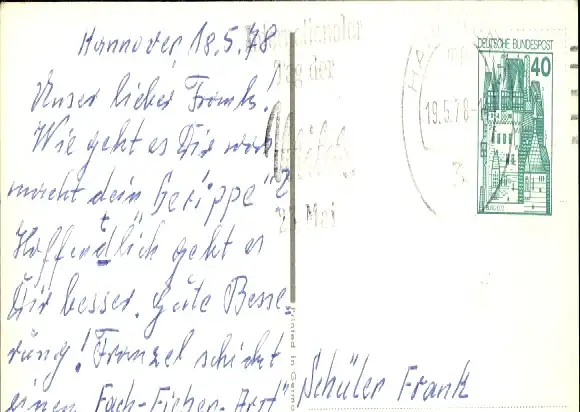 Hannover, 18.5.78
Unser lieber Frank.
Wie geht es Dir, was
macht dein Gerippe"?
Hoffentdlich geht es
Dir besser. Gute Besse-
rung! Franzel schickt
einen "Fach-Fieber-Arzt"
Internationaler
Tag der
Milch
Mai
19.5.78
DEUTSCHE BUNDESPOST
40
Printed in Germ
Schüler Frank